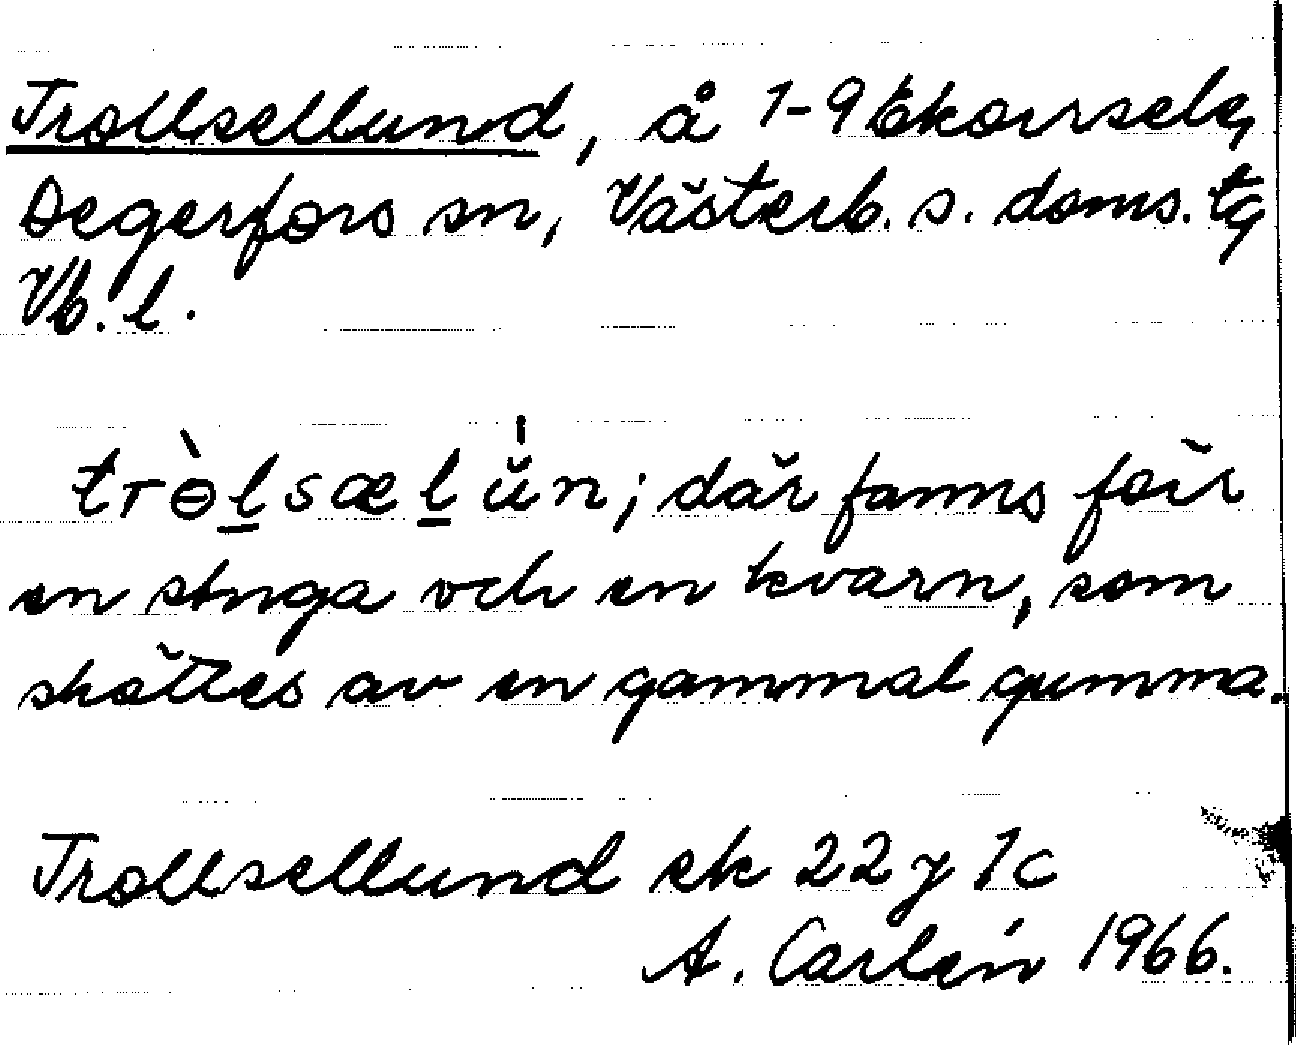 Trollsellund, å 1-9 Ekorrsele,
Degerfors sn, Västerb. s. doms. tg,
Vb. l.
trɵ̀lsælŭ̍n; där fanns förr
en stuga och en kvarn, som
sköttes av en gammal gumma.
Trollsellund ek 22 y 1c
A. Carlén 1966.